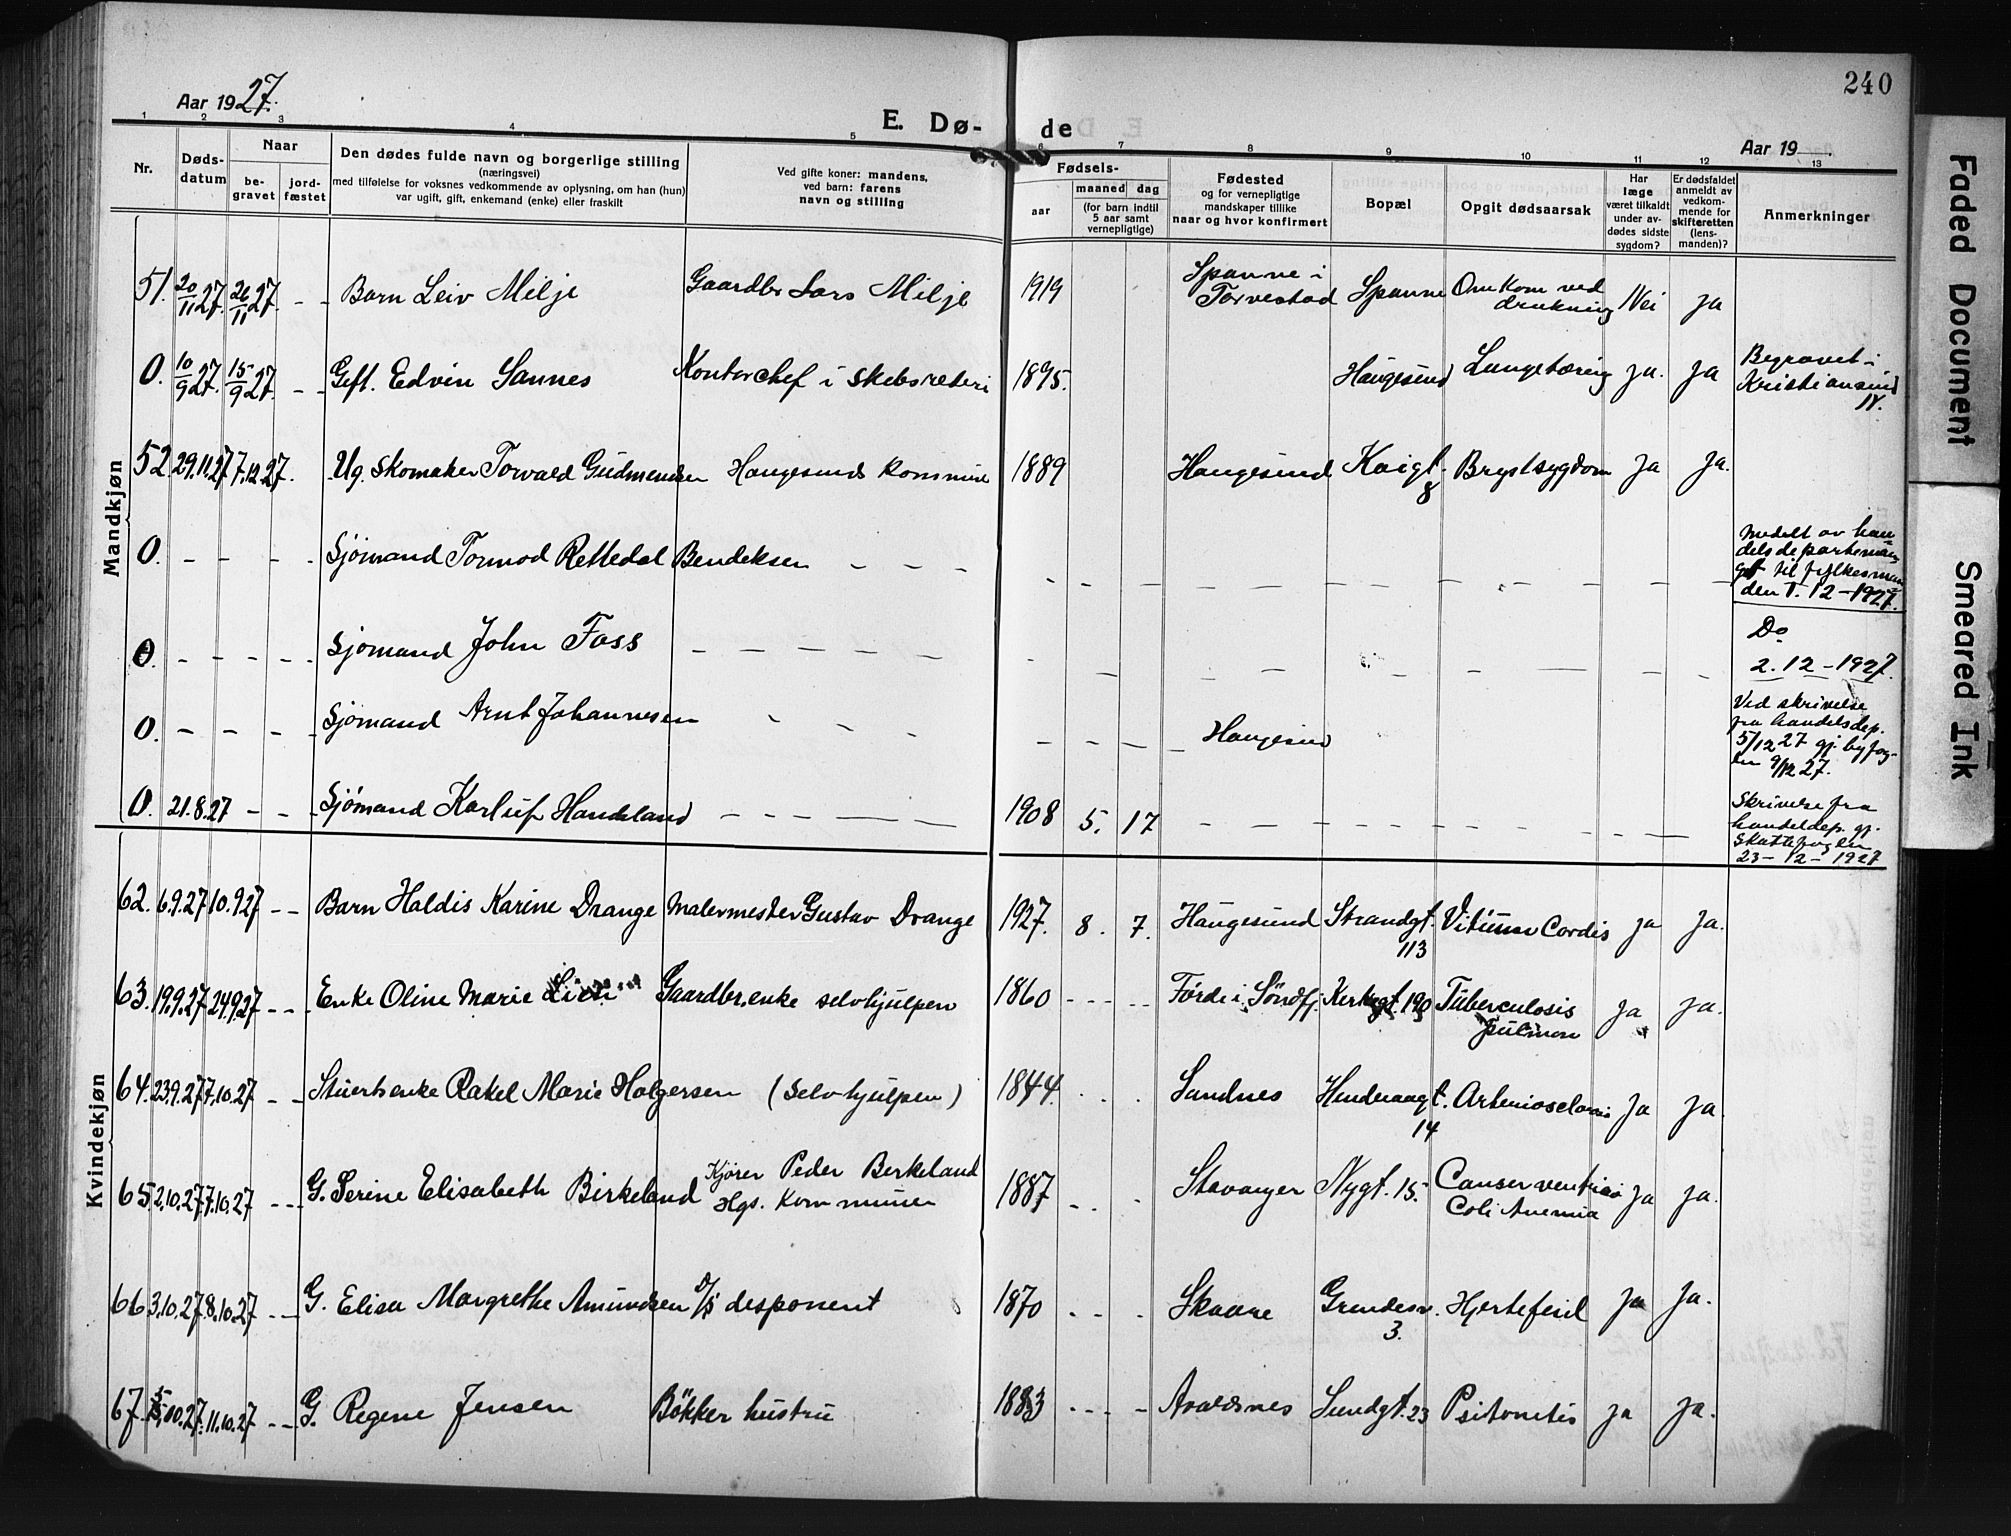 240
Aar 1927.
E. Dø- de
Aar 19
1 2 3 4 5 6 7 8 9 10 11 12 13
Nr.
Døds-
datum
Naar
be-
gravet
jord-
fæstet
Den dødes fulde navn og borgerlige stilling
(næringsvei)
med tilføielse for voksnes vedkommende av oplysning, om han (hun)
var ugift, gift, enkemand (enke) eller fraskilt
Ved gifte koner: mandens,
ved barn: farens
navn og stilling
Fødsels-
aar
maaned dag
(for barn indtil
5 aar samt
vernepligtige)
Fødested
og for vernepligtige
mandskaper tillike
naar og hvor konfirmert
Bopæl
Opgit dødsaarsak
Har
læge
været tilkaldt
under av-
dødes sidste
sygdom?
Er dødsfaldet
anmeldt av
vedkom-
mende for
skifteretten
(lens-
manden)?
Anmerkninger
Mandkjøn
51. 20/11 27. 26/11 27. - - Barn Leiv Milje Gaardbr Lars Milje 1919 Spanne i Torvestad Spanne Omkom ved drukning Nei ja
0. 10/9 27. 15/9 27 - - Gift. Edvin Sannes Kontorchef i skebsrederi 1895. Haugesund Lungetæring ja. ja Begravet i Kristiansund N.
52. 29.11.27 7.12.27. Ug. Skomaker Torvald Gudmundsen Haugesunds kommune 1889 Haugesund Kaigt. 8 Brystsygdom ja ja.
0. - - - - Sjömand Tormod Rettedal Bendeksen - - - Medelt av han-
delsdeparteman
get til fylkesman
den 1. 12 - 1927.
0. - - - - Sjömand John Foss - - - - - Do
2. 12 - 1927.
0. - - - - Sjömand Arnt Johannesen - - - - - - Haugesund Ved skrivelse
fra handelsdep.
5/12 27 gj. byfog-
den 9/12 27.
0. 21.8.27 - - Sjömand Karluf Handeland - - - - - 1908 5. 17 - - - Skrivelse fra
handeldep. gj.
Skattefogden
23 - 12 - 1927
Kvindekjøn
62. 6.9.27 10.9.27 - - Barn Haldis Karine Drange Malermester Gustav Drange 1927. 8. 7. Haugesund Strandgt. 113 Vitium Cordis ja ja.
63. 19.9.27 24.9.27 - - Enke Oline Marie Gaardbr.enke selvhjulpen 1860 - - - - Förde i Söndfj. Kirkegt. 190 Tuberculosis pulmon ja ja.
64. 23.9.27 7.10.27 - - Stuertsenke Rakel Marie Holgersen (selvhjulpen) 1844. Sandnes 14 ja ja
65 2.10.27 7.10.27 - - - G. Serine Elisabeth Birkeland Kjörer Peder Berkeland Hgs. Kommunen 1887 Stavanger Nygt. 15. Canser ventric Coli Anemia ja ja.
66 3.10.27 8.10.27 - - G. Elisa Margrethe Amundsen D/s desponent 1870 - - - Skaare 3. Hjertefeil ja ja.
67. 5.10.27. 11.10.27 - - G. Regene Jensen Bökker hustru 1883 - - - - Avaldsnes Sundgt. 23 Psitonitis ja ja.
Faded Document
Smeared Ink